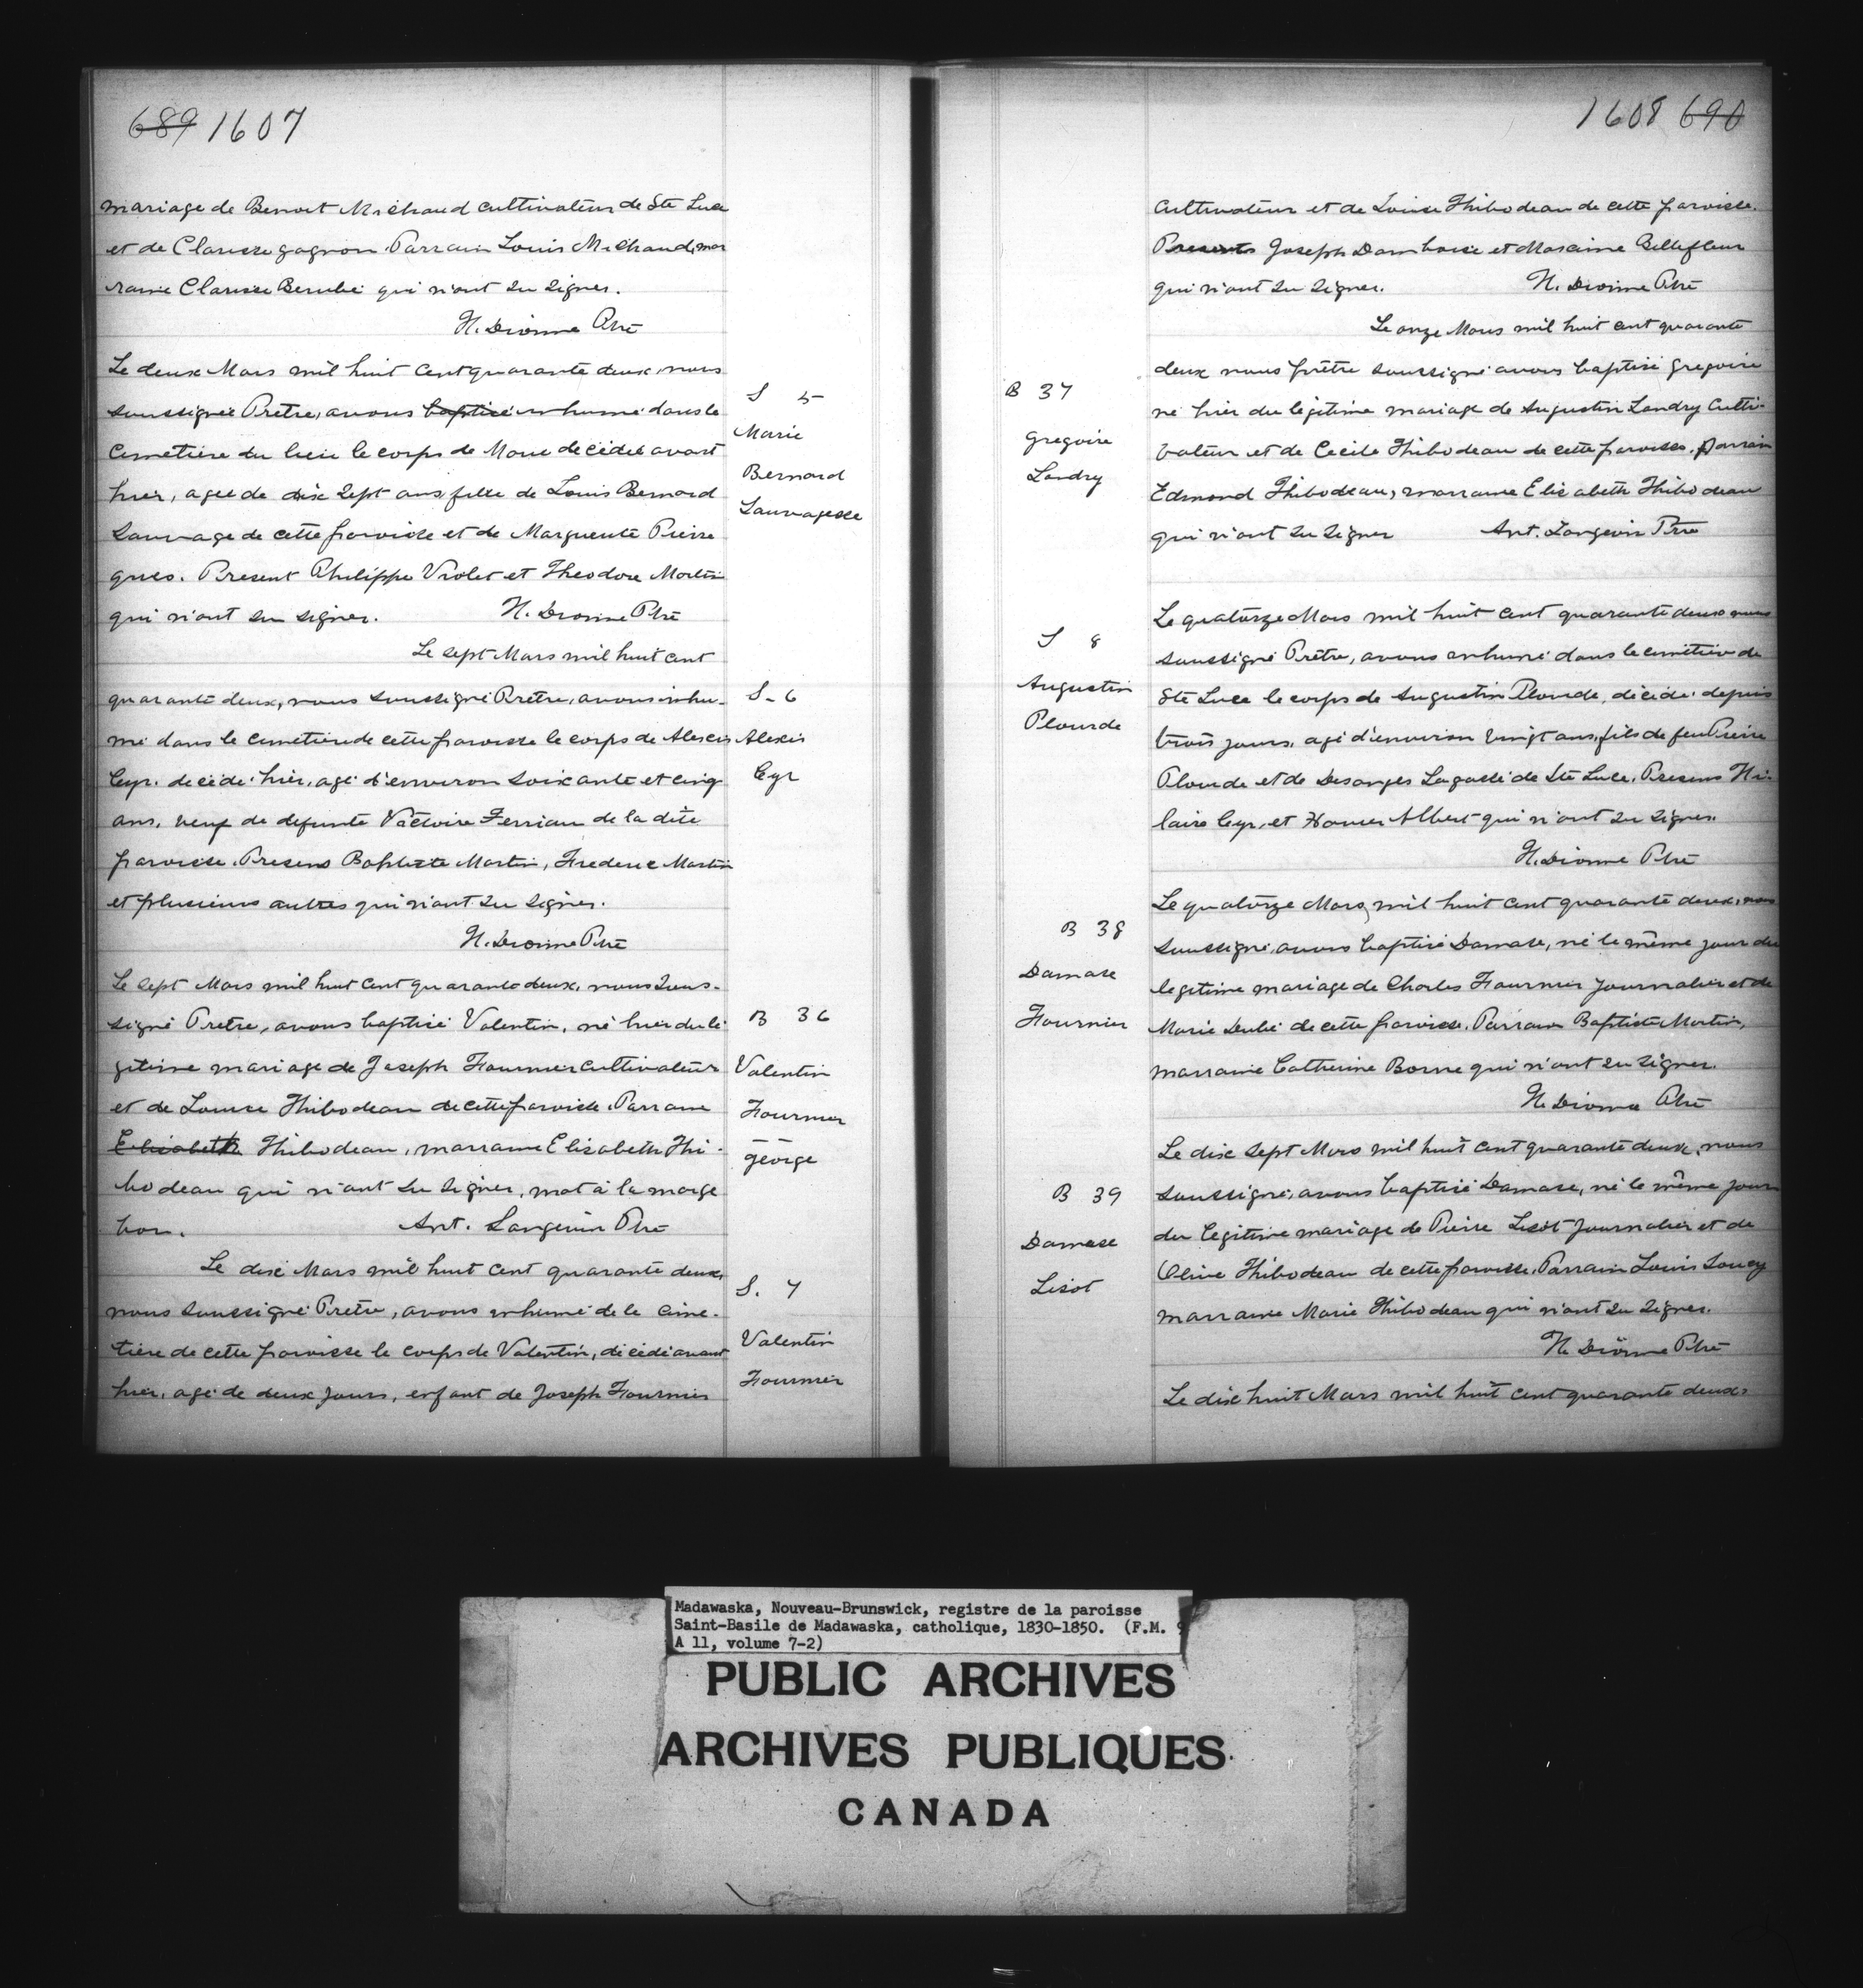 689 1607
mariage de Benoit Michaud cultivateur de Ste Luce
et de Clarisse gagnon. Parrain Louis Michaud, mar
raine Clarisse Berubé qui n'ont su signer.
H. Dionne Ptre
Le deux Mars mil huit cent quarante deux, nous
soussigné Prêtre, avons baptisé inhumé dans le
cimetière du lieu le corps de Marie décédée avant
hier, agée de dix sept ans fille de Louis Bernard
Sauvage de cette paroisse et de Marguerite Pierre
gues. Present Philippe Violet et Theodore Martin
qui n'ont su signer. H. Dionne Ptre
Le sept Mars mil huit cent
quarante deux, nous soussigné Prêtre, avons inhu-
mé dans le cimetière de cette paroisse le corps de Alexis
Cyr. décédé hier, agé d'environ soixante et cinq
ans, veuf de defunte Victoire Ferriau de la dite
paroisse. Presens Baptiste Martin, Frederic Martin
et plusieurs autres qui n'ont su signer.
H. Dionne Ptre
Le sept Mars mil huit cent quarante deux, nous sous-
signé Pretre, avons baptisé Valentin, né hier du lé
gitime mariage de Joseph Fournier cultivateur
et de Louise Thibodeau de cette paroisse. Parrain
Elisabeth Thibodeau, marraine Elisabeth Thi-
bodeau qui n'ont su signer, mot à la marge
bon. Ant. Langevin Ptre
Le dix Mars mil huit cent quarante deux,
nous soussigné Pretre, avons inhumé de le cime-
tière de cette paroisse le corps de Valentin, décédé avant
hier, agé de deux jours, enfant de Joseph Fournier
S 5
Marie
Bernard
Sauvagesse
S-6
Alexis
Cyr
B 36
Valentin
Fournier
george
S. 7
Valentin
Fournier
1608 690
cultivateur et de Louise Thibodeau de cette paroisse.
Presents Joseph Damboise et Maxime Bellefleur
qui n'ont su signer. H. Dionne Ptre
Le onze Mars mil huit cent quarante
deux nous prêtre soussigné avons baptisé gregoire
né hier du légitime mariage de Augustin Landry Culti-
vateur et de Cecile Thibodeau de cette paroisse, Parrain
Edmond Thibodeau, marraine Elisabeth Thibodeau
qui n'ont su signer Ant. Langevin Ptre
Le quatorze Mars mil huit cent quarante deux nous
soussigné Prêtre, avons inhumé dans le cimetière de
Ste Luce le corps de Augustin Plourde, décédé depuis
trois jours, agé d'environ vingt ans, fils de feu Pierre
Plourde et de Desanges Lagassé de Ste Luce. Presens Hi-
laire Cyr, et Xavier Albert qui n'ont su signer.
H. Dionne Ptre
Le quatorze Mars, mil huit cent quarante deux, nous
soussigné, avons baptisé Damase, né le même jour du
legitime mariage de Charles Fournier journalier et de
Marie Dubé de cette paroisse. Parrain Baptiste Martin,
marraine Catherine Borne qui n'ont su signer.
H. Dionne Ptre
Le dix sept Mars mil huit cent quarante deux, nous
soussigné, avons baptisé Damase, né le même jour
du legitime mariage de Pierre Lizot journalier et de
Olive Thibodeau de cette paroisse. Parrain Louis Soucy
marraine Marie Thibodeau qui n'ont su signer.
H. Dionne Ptre
Le dix huit Mars mil huit cent quarante deux,
B 37
gregoire
Landry
S 8
Augustin
Plourde
B 38
Damase
Fournier
B 39
Damase
Lizot
Madawaska, Nouveau-Brunswick, registre de la paroisse
Saint-Basile de Madawaska, catholique, 1830-1850. (F.M. 9
A 11, volume 7-2)
PUBLIC ARCHIVES
ARCHIVES PUBLIQUES
CANADA